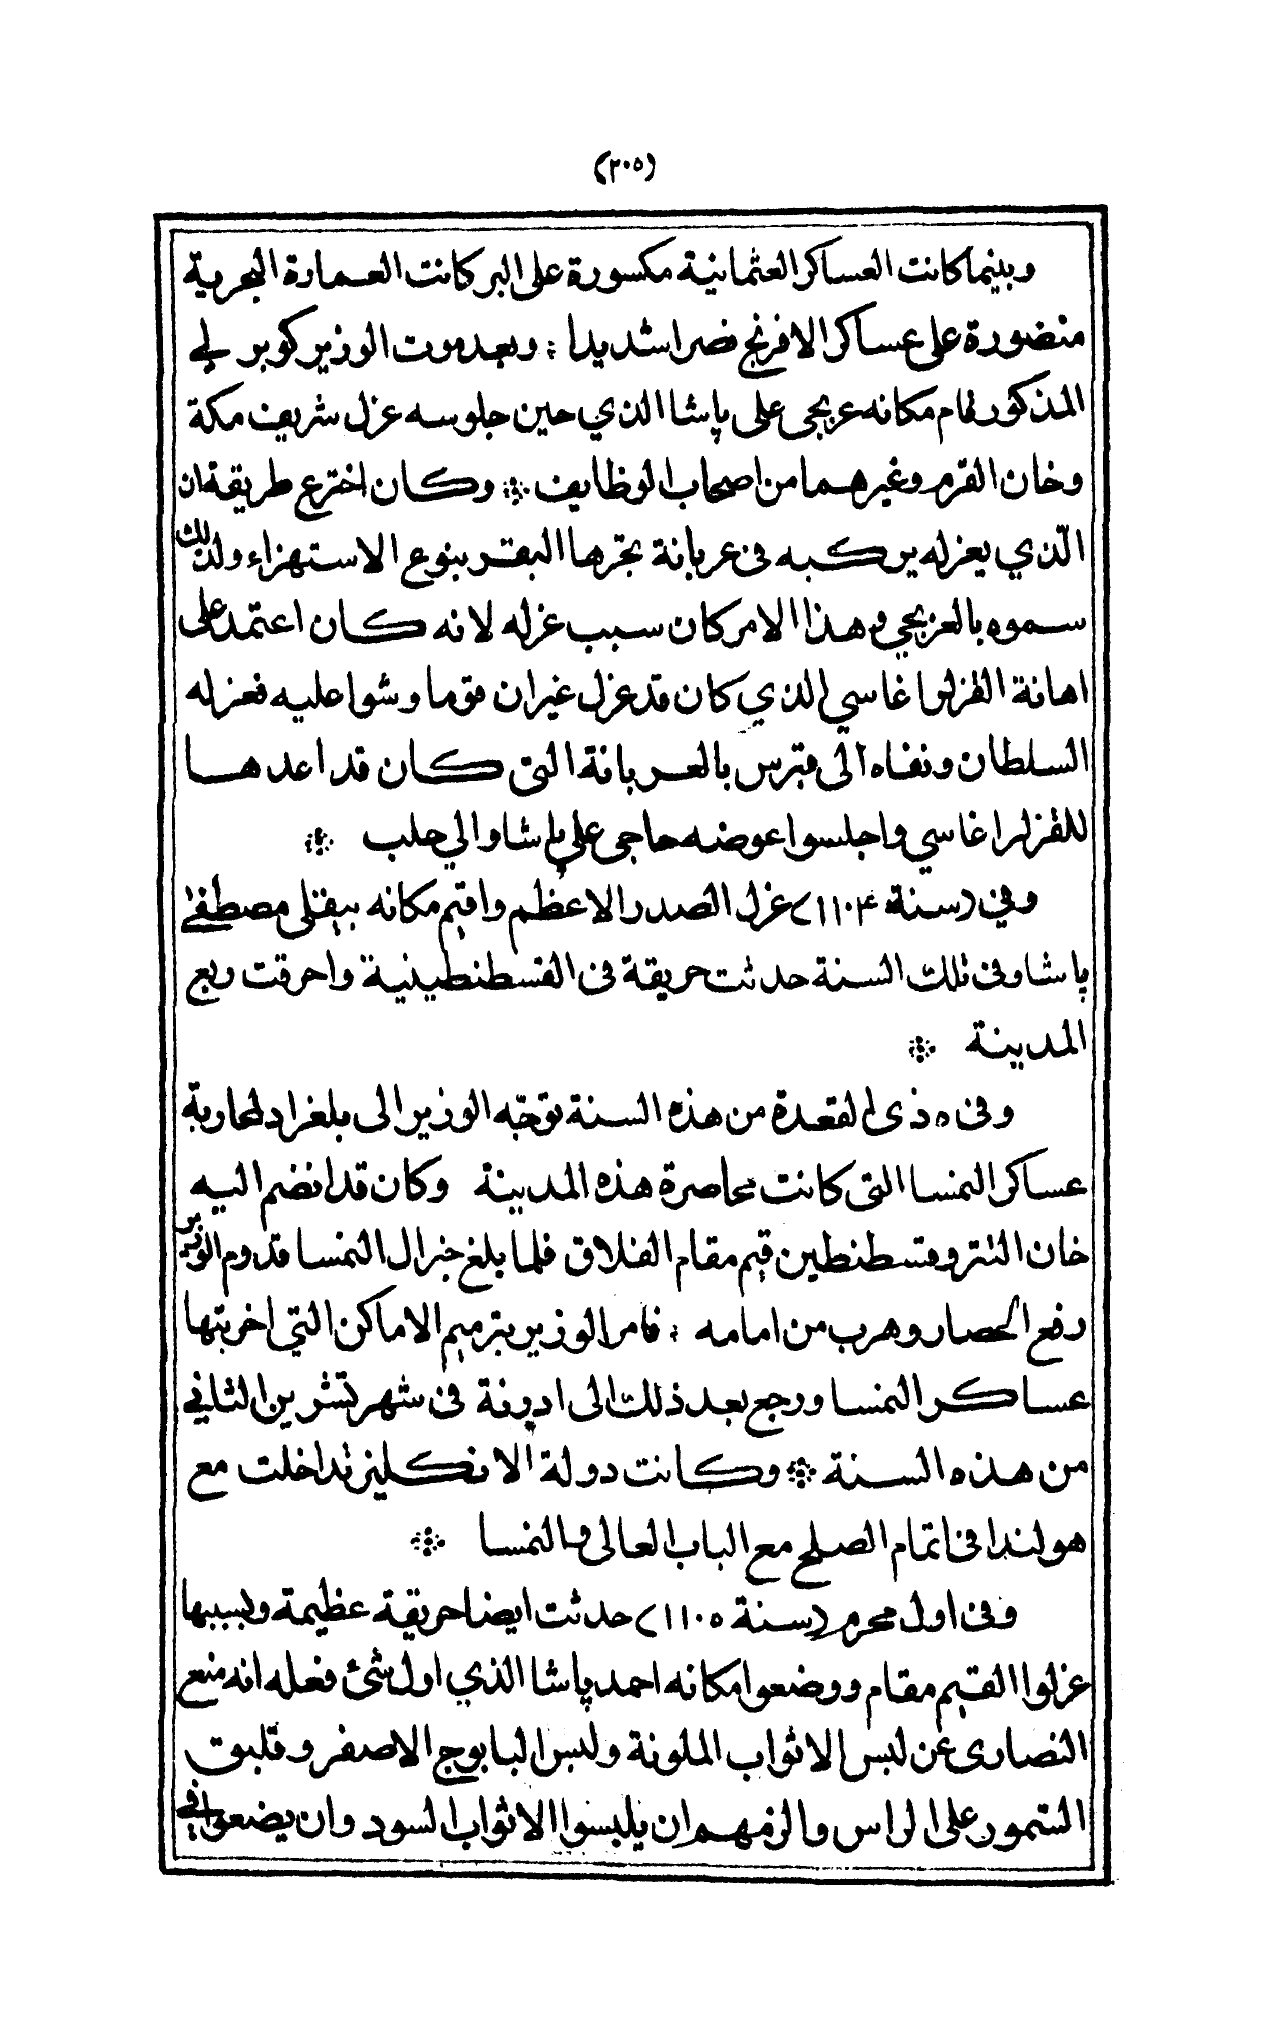 (٢٠٥)
وبينما كانت العساكر العثمانية مكسورة على البر كانت العمارة البحرية
منصورة على عساكر الافرنج نصرا شديدا ؛ وبعد موت الوزير كوبر لي
المذكور قام مكانه عربجى على پاشا الذي حين جلوسه عزل شريف مكة
وخان القرم وغيرهما من اصحاب الوظايف ۞ وكان اخترع طريقة ان
الّذي يعزله يركبه فى عربانة تجرها البقر بنوع الاستهزاء ولذلك
سموه بالعربجي وهذا الامر كان سبب عزله لانه كان اعتمد على
اهانة القزلرا غاسي الذي كان قد عزل غير ان قوما وشوا عليه فعزله
السلطان ونفاه الى قبرس بالعربانة التى كان قد اعدها
للقزلرا غاسي واجلسوا عوضه حاجى على پاشا والي حلب ۞
وفي (سنة ١١٠٤) عزل الصدر الاعظم واقيم مكانه بيقلى مصطفى
پاشا وفى تلك السنة حدثت حريقة فى القسطنطينية واحرقت ربع
المدينة ۞
وفى ٥ ذى القعدة من هذه السنة توجّه الوزير الى بلغراد لمحاربة
عساكر النمسا التى كانت محاصرة هذه المدينة وكان قد انضم اليه
خان التتر وقسطنطين قيم مقام الفلاق فلما بلغ جنرال النمسا قدوم الوزير
رفع الحصار وهرب من امامه ؛ فامر الوزير بترميم الاماكن التي اخربتها
عساكر النمسا ورجع بعد ذلك الى ادرنة فى شهر تشرين الثاني
من هذه السنة ۞ وكانت دولة الانكليز تداخلت مع
هولندا فى اتمام الصلح مع الباب العالى والنمسا ۞
وفى اول محرم (سنة ١١٠٥) حدثت ايضا حريقة عظيمة وبسببها
عزلوا القيم مقام ووضعوا مكانه احمد پاشا الذي اول شئ فعله انه منع
النصارى عن لبس الاثواب الملونة ولبس البابوج الاصفر وقلبق
السّمور على الراس والزمهم ان يلبسوا الاثواب السود وان يضعوا في